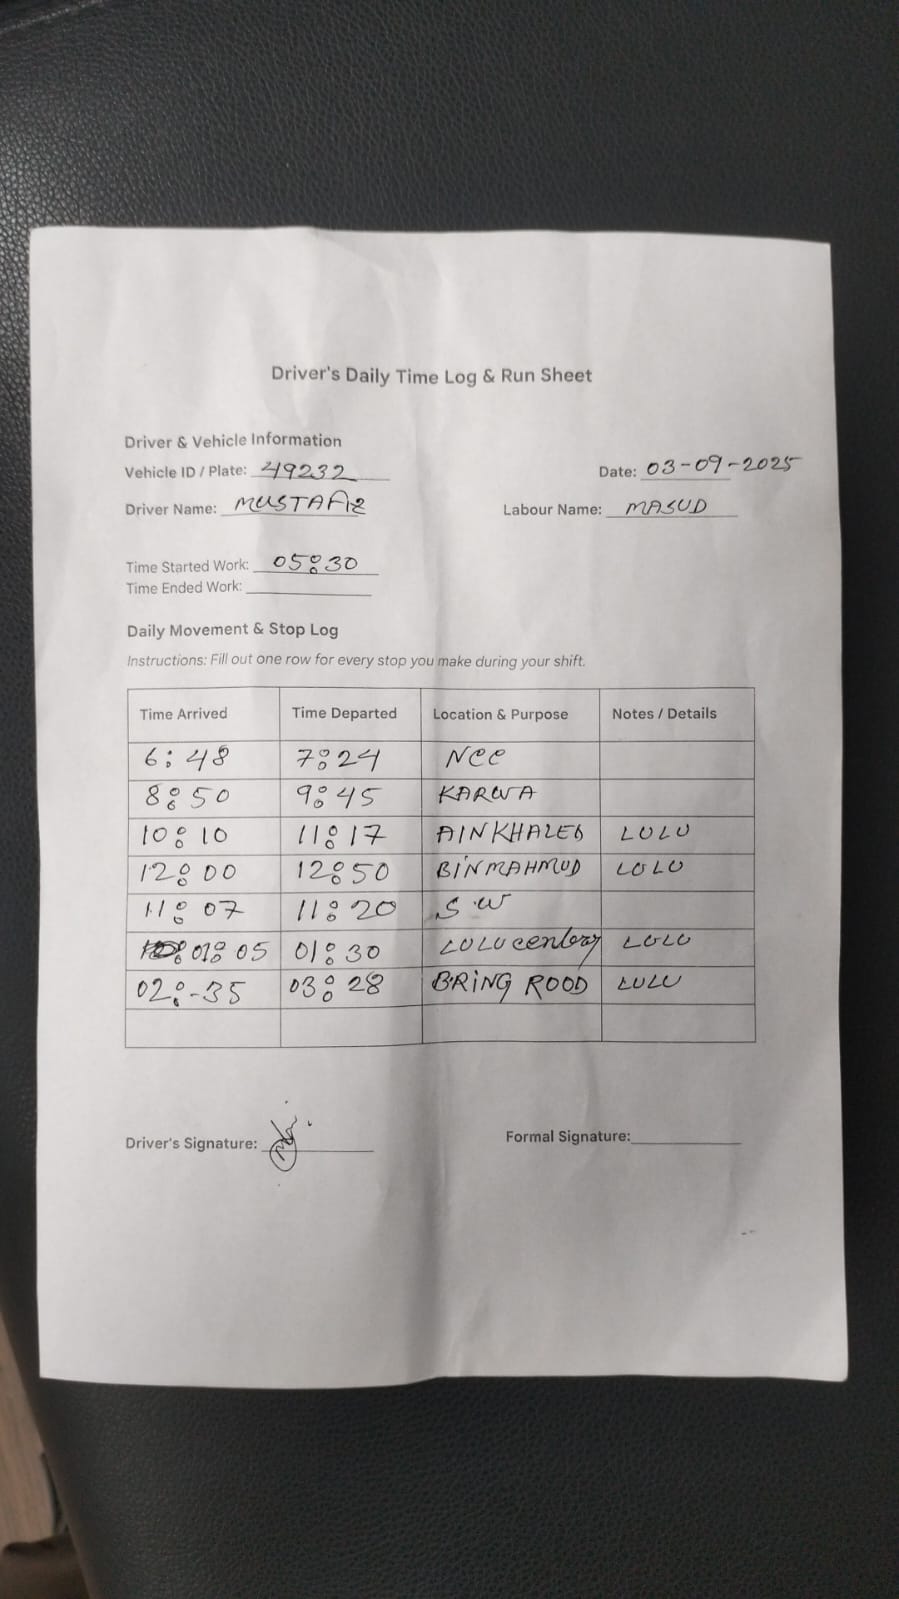 Driver's Daily Time Log & Run Sheet
Driver & Vehicle Information
Vehicle ID / Plate: 49232 Date: 03-09-2025
Driver Name: MUSTAFIZ Labour Name: MASUD
Time Started Work: 05:30
Time Ended Work:
Daily Movement & Stop Log
Instructions: Fill out one row for every stop you make during your shift.
Time Arrived Time Departed Location & Purpose Notes / Details
6:48 7:24 NCC
8:50 9:45 KARWA
10:10 11:17 AINKHALED LULU
12:00 12:50 BINMAHMUD LULU
11:07 11:20 S.W
01:05 01:30 LULU LULU
02:-35 03:28 B.RING ROOD LULU
Driver's Signature: Formal Signature: